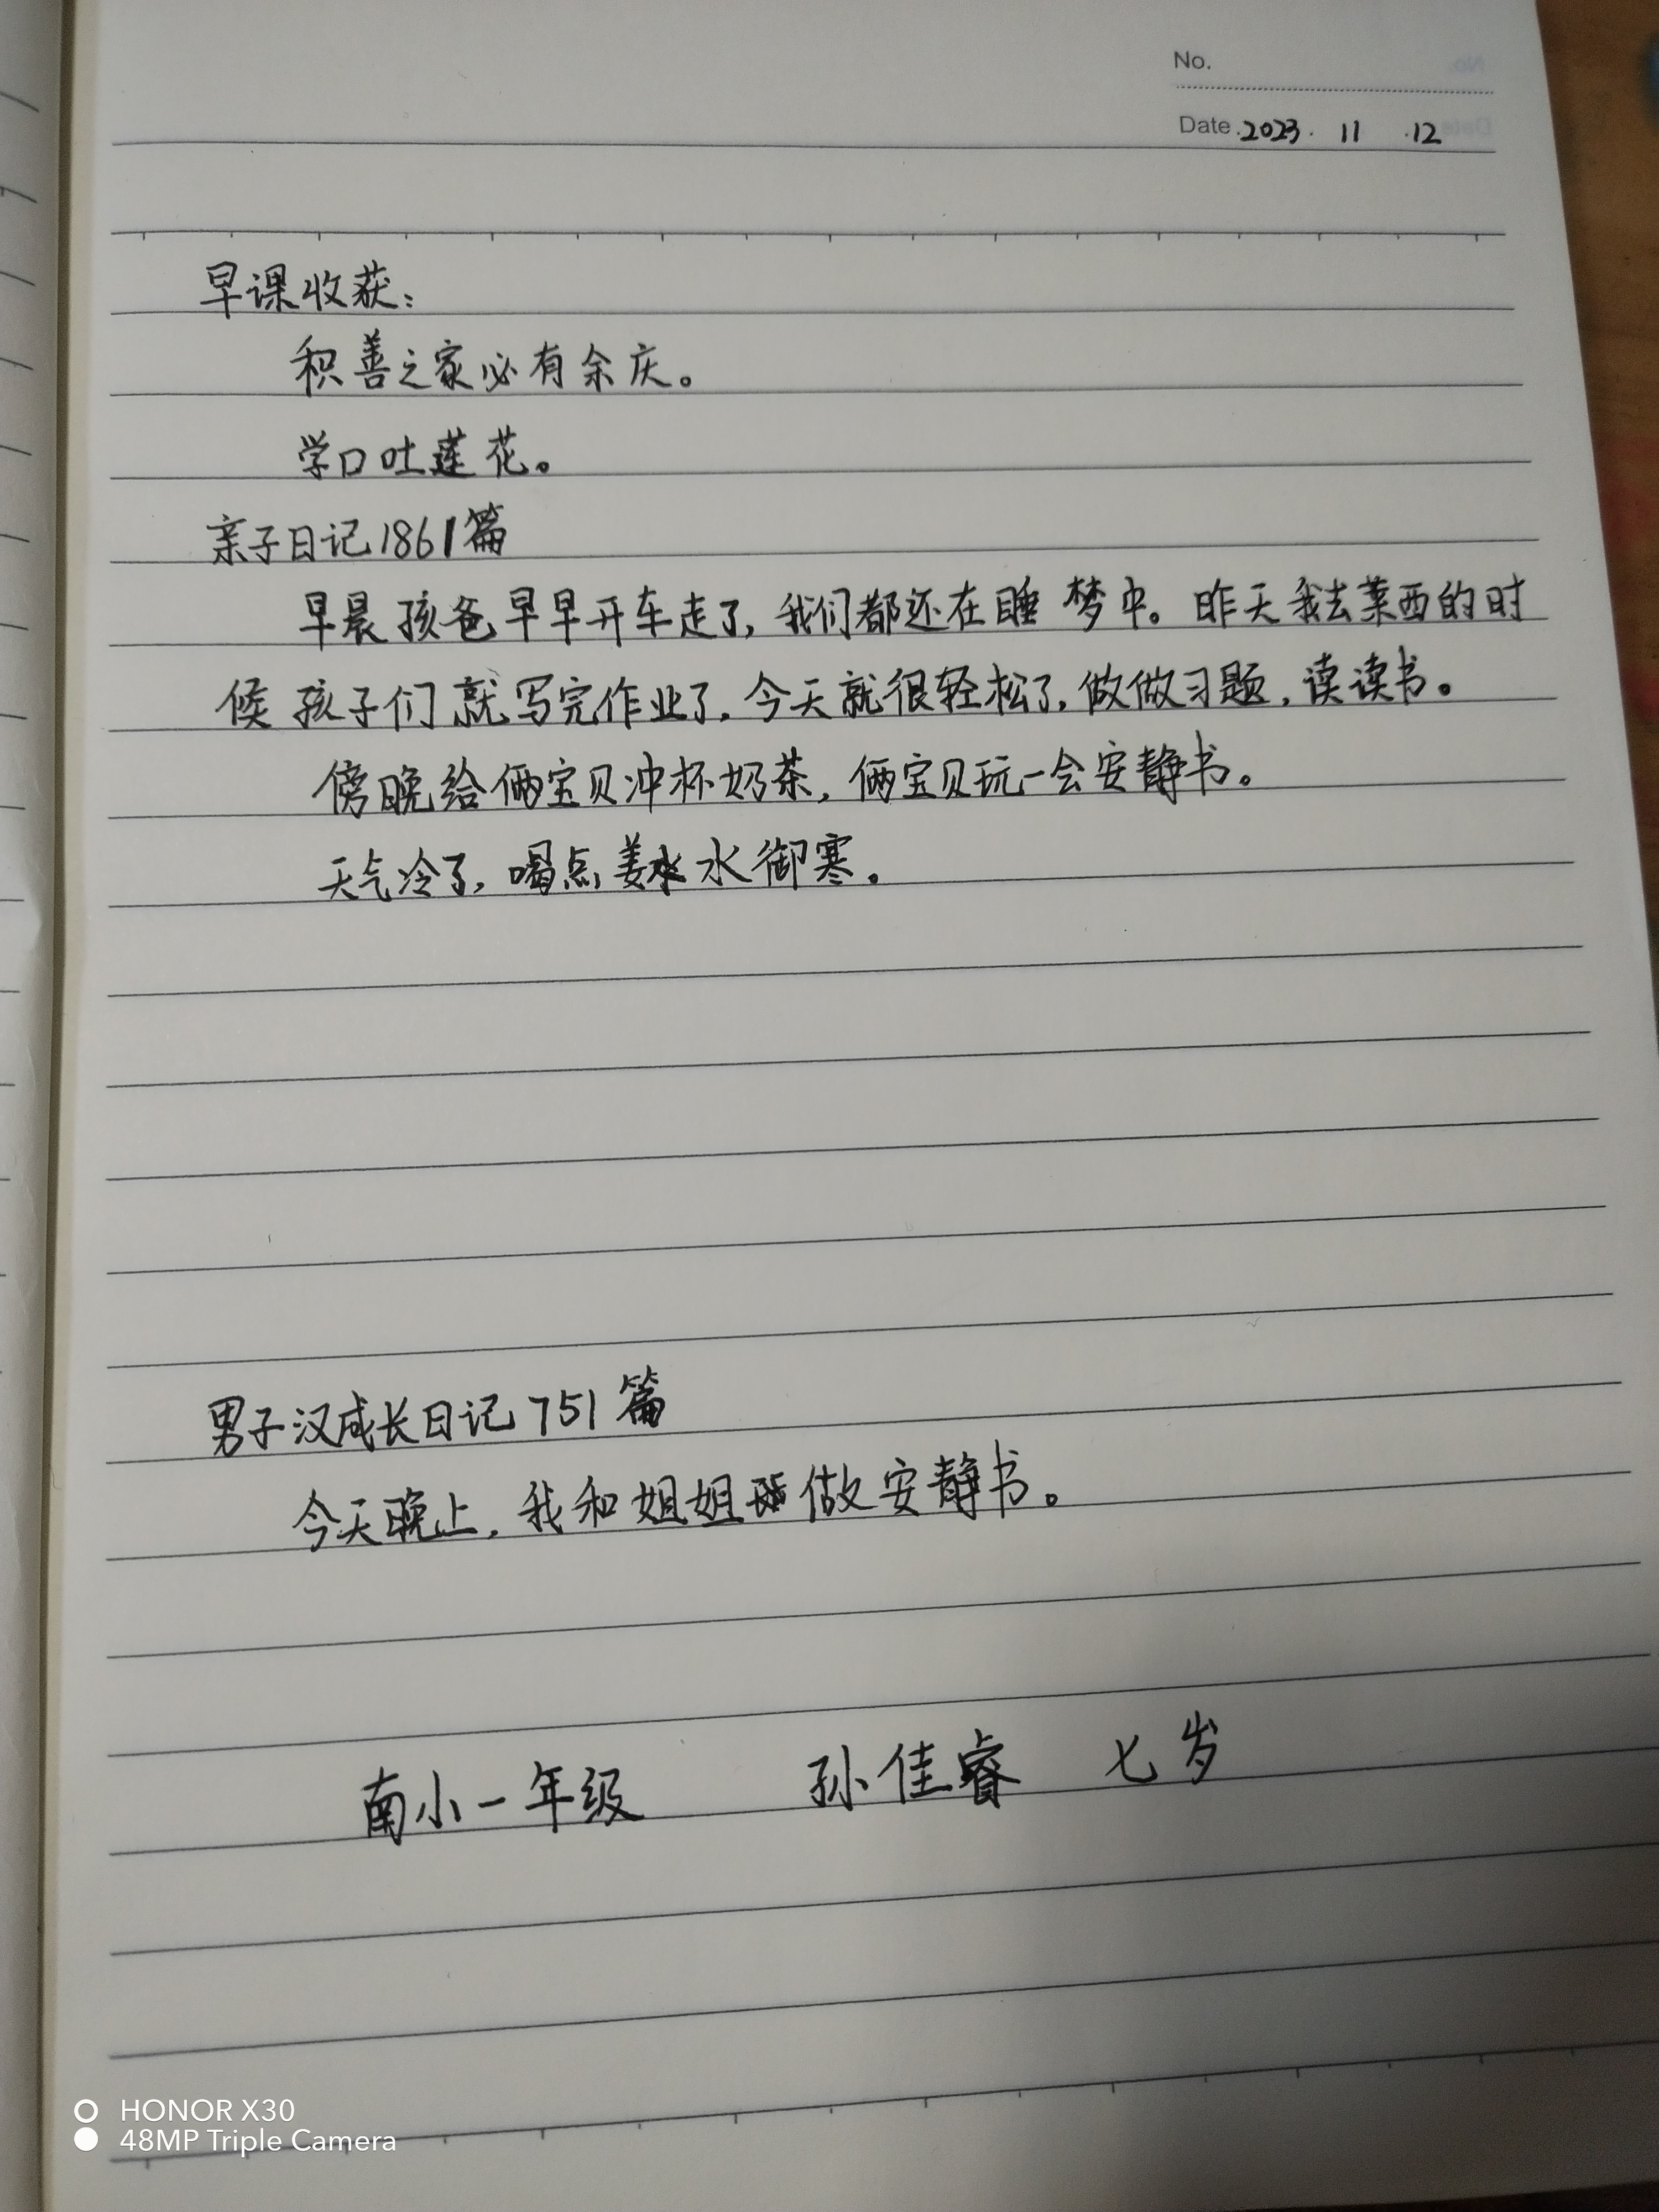 No.
Date 2023 · 11 · 12
早课收获：
积善之家必有余庆。
学口吐莲花。
亲子日记1861篇
早晨孩爸早早开车走了，我们都还在睡梦中。昨天我去莱西的时
候孩子们就写完作业了，今天就很轻松了，做做习题，读读书。
傍晚给俩宝贝冲杯奶茶，俩宝贝玩一会安静书。
天气冷了，喝点姜水御寒。
男子汉成长日记751篇
今天晚上，我和姐姐做安静书。
南小一年级 孙佳睿 七岁
HONOR X30
48MP Triple Camera